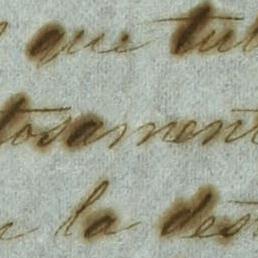 que tub
tosament
la des